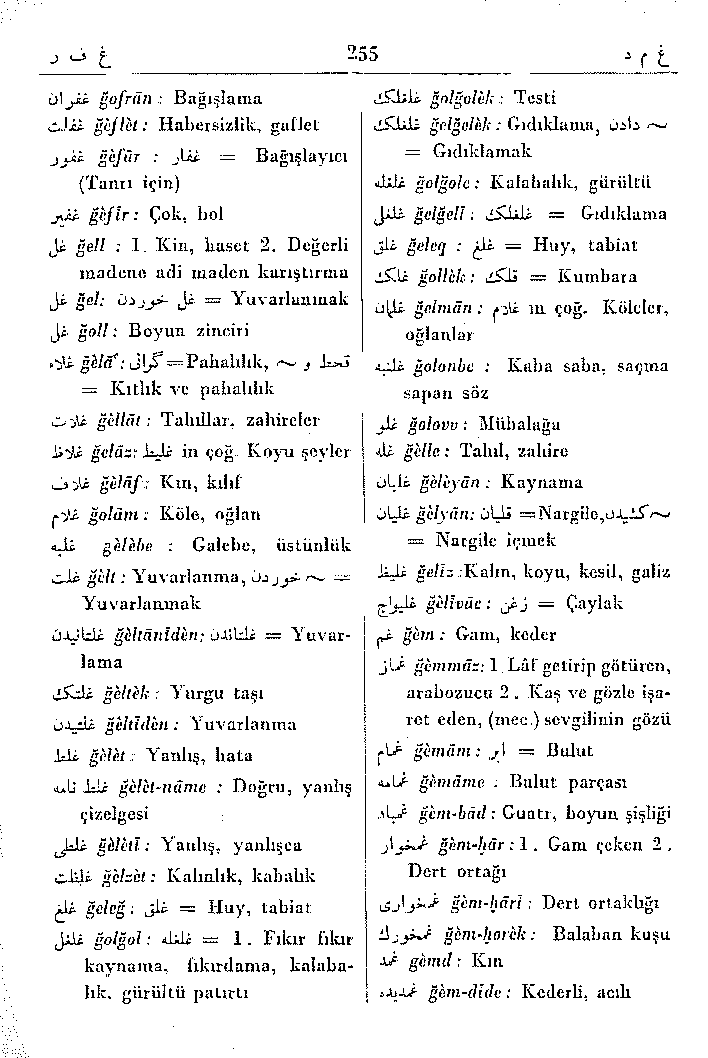 غ ف ر 255 غ م د
غفران ğofrān : Bağışlama
غفلت ğèflèt : Habersizlik, gaflet
غفور ğèfūr : غفار = Bağışlayıcı
(Tanrı için)
غفیر ğèfīr : Çok, bol
غل ğell : 1. Kin, haset 2. Değerli
madene adi maden karıştırma
غل ğel: غل خوردن = Yuvarlanmak
غل ğoll : Boyun zinciri
غلاء ğèlā': گرانی=Pahalılık, قحط و ~
= Kıtlık ve pahalılık
غلات ğèllāt : Tahıllar, zahireler
غلاظ ğelāz: غلیظ in çoğ. Koyu şeyler
غلاف ğèlāf : Kın, kılıf
غلام ğolām : Köle, oğlan
غلبه ğèlèbe : Galebe, üstünlük
غلت ğèlt : Yuvarlanma, خوردن ~ =
Yuvarlanmak
غلتانیدن ğèltānīdèn: غلتاندن = Yuvar-
lama
غلتک ğèltèk : Yurgu taşı
غلتیدن ğèltīdèn : Yuvarlanma
غلط ğèlèt : Yanlış, hata
غلط نامه ğèlèt-nāme : Doğru, yanlış
çizelgesi
غلطی ğèlètī : Yanlış, yanlışca
غلظت ğèlzèt : Kalınlık, kabalık
غلغ ğeleğ : غلق = Huy, tabiat
غلغل ğolğol : غلغله = 1. Fıkır fıkır
kaynama, fıkırdama, kalaba-
lık, gürültü patırtı
غلغلک ğolğolèk : Testi
غلغلک ğelğelèk : Gıdıklama, دادن ~
= Gıdıklamak
غلغله ğolğole : Kalabalık, gürültü
غلغل ğelğelī : غلغلک = Gıdıklama
غلق ğeleq : غلغ = Huy, tabiat
غلک ğollèk : قلک = Kumbara
غلمان ğelmān : غلام ın çoğ. Köleler,
oğlanlar
غلنبه ğolonbe : Kaba saba, saçma
sapan söz
غلو ğolovv : Mübalağa
غله ğèlle : Tahıl, zahire
غلیان ğèlèyān : Kaynama
غلیان ğèlyān: قلیان =Nargile, کشیدن ~
= Nargile içmek
غلیظ ğelīz :Kalın, koyu, kesil, galiz
غلیواج ğèlīvāc : زغن = Çaylak
غم ğèm : Gam, keder
غماز ğèmmāz: 1.Lâf getirip götüren,
arabozucu 2. Kaş ve gözle işa-
ret eden, (mec.) sevgilinin gözü
غمام ğèmām : ابر = Bulut
غمامه ğèmāme : Bulut parçası
غمباد ğèm-bād : Guatr, boyun şişliği
غمخوار ğèm-hār : 1. Gam çeken 2.
Dert ortağı
غمخواری ğèm-hārī : Dert ortaklığı
غمخورک ğèm-horèk : Balaban kuşu
غمد ğèmd : Kın
غمدیده ğèm-dīde : Kederli, acılı